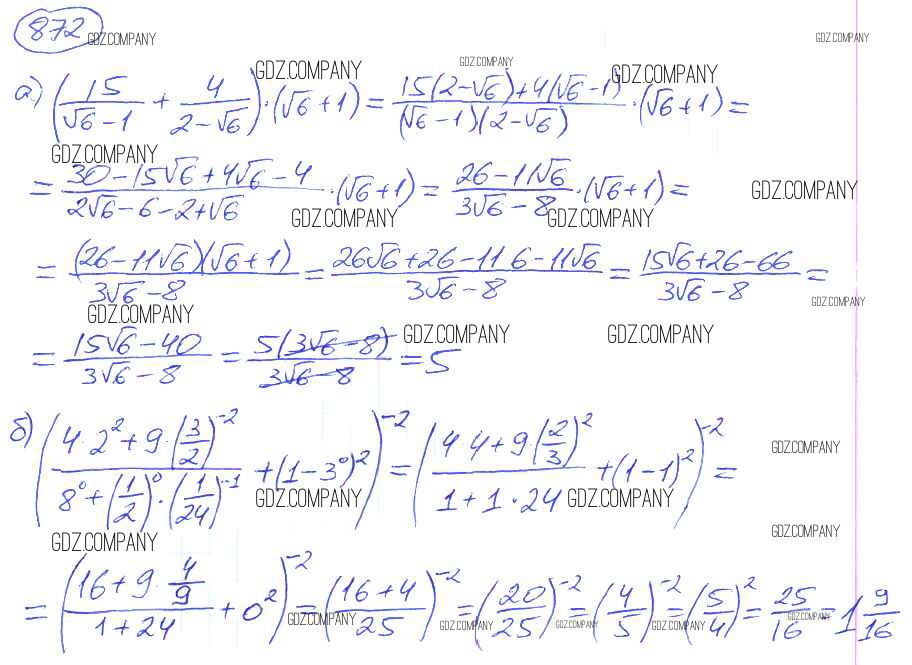 872 GDZ.COMPANY GDZ.COMPANY
GDZ.COMPANY GDZ.COMPANY GDZ.COMPANY
а) (15/(√6-1) + 4/(2-√6)) · (√6+1) = (15(2-√6)+4(√6-1))/((√6-1)(2-√6)) · (√6+1) =
GDZ.COMPANY
= (30-15√6+4√6-4)/(2√6-6-2+√6) · (√6+1) = (26-11√6)/(3√6-8) · (√6+1) = GDZ.COMPANY
GDZ.COMPANY GDZ.COMPANY
= ((26-11√6)(√6+1))/(3√6-8) = (26√6+26-11 6-11√6)/(3√6-8) = (15√6+26-66)/(3√6-8) =
GDZ.COMPANY GDZ.COMPANY
GDZ.COMPANY GDZ.COMPANY
= (15√6-40)/(3√6-8) = (5(3√6-8))/(3√6-8) = 5
б) ((4·2²+9·(3/2)⁻²)/(8⁰+(1/2)⁰·(1/24)⁻¹) + (1-3⁰)²)⁻² = ((4 4+9·(2/3)²)/(1+1·24) + (1-1)²)⁻² =
GDZ.COMPANY
GDZ.COMPANY GDZ.COMPANY
GDZ.COMPANY GDZ.COMPANY
= ((16+9·4/9)/(1+24) + 0²)⁻² = ((16+4)/25)⁻² = (20/25)⁻² = (4/5)⁻² = (5/4)² = 25/16 = 1 9/16
GDZ.COMPANY GDZ.COMPANY GDZ.COMPANY GDZ.COMPANY GDZ.COMPANY